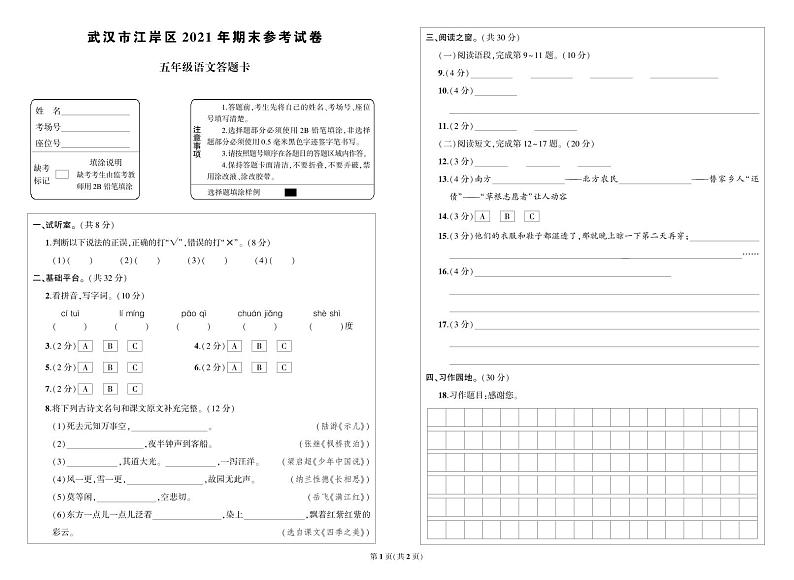 武汉市江岸区 2021 年期末参考试卷
五年级语文答题卡
姓 名
考场号
座位号
缺考标记
填涂说明
缺考考生由监考教师用 2B 铅笔填涂
注意事项
1.答题前,考生先将自己的姓名、考场号、座位号填写清楚。
2.选择题部分必须使用 2B 铅笔填涂,非选择题部分必须使用 0.5 毫米黑色字迹签字笔书写。
3.请按照题号顺序在各题目的答题区域内作答。
4.保持答题卡面清洁,不要折叠、不要弄破,禁用涂改液、涂改胶带。
选择题填涂样例
一、试听室。(共 8 分)
1.判断以下说法的正误,正确的打“√”,错误的打“✕”。(8 分)
(1)( ) (2)( ) (3)( ) (4)( )
二、基础平台。(共 32 分)
2.看拼音,写字词。(10 分)
cí tuì lí míng pāo qì chuán jiǎng shè shì
( ) ( ) ( ) ( ) ( )度
3.(2 分) A B C 4.(2 分) A B C
5.(2 分) A B C 6.(2 分) A B C
7.(2 分) A B C
8.将下列古诗文名句和课文原文补充完整。(12 分)
(1)死去元知万事空, 。 (陆游《示儿》)
(2) ,夜半钟声到客船。 (张继《枫桥夜泊》)
(3) ,其道大光。 ,一泻汪洋。 (梁启超《少年中国说》)
(4)风一更,雪一更, ,故园无此声。 (纳兰性德《长相思》)
(5)莫等闲, ,空悲切。 (岳飞《满江红》)
(6)东方一点儿一点儿泛着 ,染上 ,飘着红紫红紫的
彩云。 (选自课文《四季之美》)
三、阅读之窗。(共 30 分)
(一)阅读语段,完成第 9~11 题。(10 分)
9.(4 分)
10.(4 分)
11.(2 分)
(二)阅读短文,完成第 12~17 题。(20 分)
12.(3 分)
13.(4 分)南方 ——北方农民 ——督家乡人“还
债”——“草根志愿者”让人动容
14.(3 分) A B C
15.(3 分)他们的衣服和鞋子都湿透了,那就晚上晾一下第二天再穿;
……
16.(4 分)
17.(3 分)
四、习作园地。(30 分)
18.习作题目:感谢您。
第 1 页(共 2 页)